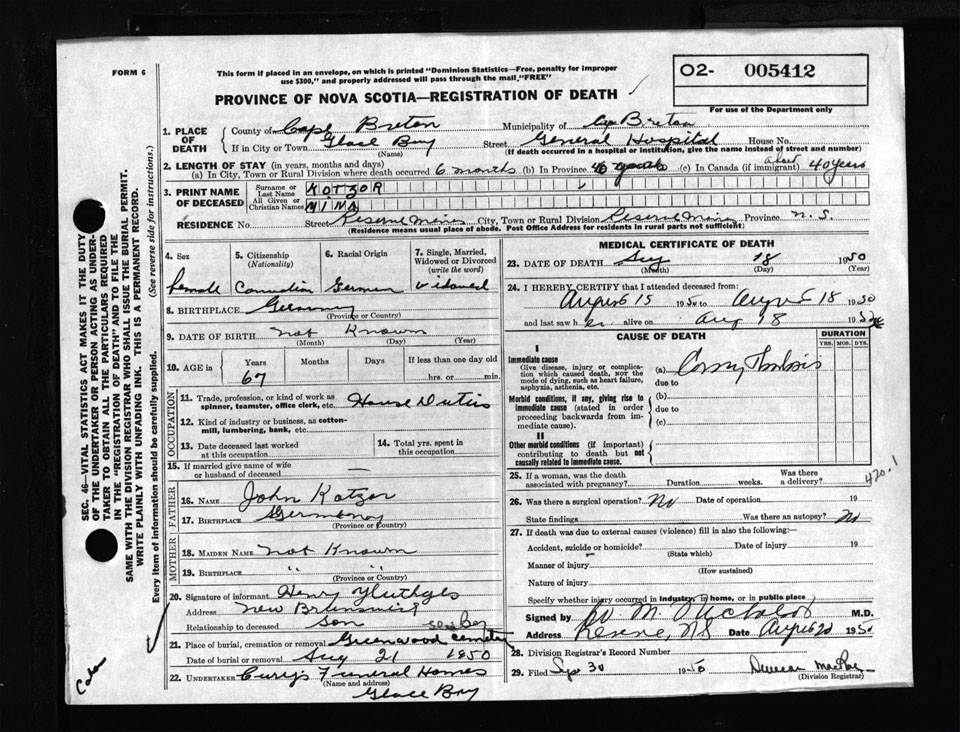 FORM 6
This form if placed in an envelope, on which is printed "Dominion Statistics—Free, penalty for improper
use $300," and properly addressed will pass through the mail "FREE"
O2- 005412
For use of the Department only
PROVINCE OF NOVA SCOTIA—REGISTRATION OF DEATH
SEC. 46—VITAL STATISTICS ACT MAKES IT THE DUTY
OF THE UNDERTAKER OR PERSON ACTING AS UNDER-
TAKER TO OBTAIN ALL THE PARTICULARS REQUIRED
IN THE "REGISTRATION OF DEATH" AND TO FILE THE
SAME WITH THE DIVISION REGISTRAR WHO SHALL ISSUE THE BURIAL PERMIT.
WRITE PLAINLY WITH UNFADING INK. THIS IS A PERMANENT RECORD.
Every item of information should be carefully supplied. (See reverse side for instructions.)
1. PLACE OF DEATH
County of Cape Breton Municipality of Breton
If in City or Town Glace Bay Street General Hospital House No.
(Name) (If death occurred in a hospital or institution, give the name instead of street and number)
2. LENGTH OF STAY (in years, months and days)
(a) In City, Town or Rural Division where death occurred 6 months (b) In Province 40 years (c) In Canada (if immigrant) about 40 years
3. PRINT NAME OF DECEASED
Surname or Last Name KOTZOR
All Given or Christian Names MINA
RESIDENCE No. Street Reserve Mines City, Town or Rural Division Reserve Mines Province N.S.
(Residence means usual place of abode. Post Office Address for residents in rural parts not sufficient)
4. Sex
5. Citizenship (Nationality)
6. Racial Origin
7. Single, Married, Widowed or Divorced (write the word)
Female Canadian German Widowed
8. BIRTHPLACE Germany
(Province or Country)
9. DATE OF BIRTH not Known
(Month) (Day) (Year)
10. AGE in
Years Months Days If less than one day old
67 hrs. or min.
OCCUPATION
11. Trade, profession, or kind of work as
spinner, teamster, office clerk, etc. House Duties
12. Kind of industry or business, as cotton-
mill, lumbering, bank, etc.
13. Date deceased last worked
at this occupation
14. Total yrs. spent in
this occupation
15. If married give name of wife
or husband of deceased —
FATHER
16. NAME John Kotzor
17. BIRTHPLACE Germany
(Province or Country)
MOTHER
18. MAIDEN NAME not Known
19. BIRTHPLACE " "
(Province or Country)
20. Signature of informant Henry
Address New Brunswick
Relationship to deceased Son
21. Place of burial, cremation or removal Greenwood Cemetery
Date of burial or removal Aug 21 1950
22. UNDERTAKER Curry's Funeral Homes
(Name and address)
Glace Bay
MEDICAL CERTIFICATE OF DEATH
23. DATE OF DEATH Aug 18 1950
(Month) (Day) (Year)
24. I HEREBY CERTIFY that I attended deceased from:
August 15 1950 to August 18 1950
and last saw her alive on Aug 18 1950
CAUSE OF DEATH
DURATION
YRS. MOS. DYS.
I
Immediate cause
Give disease, injury or complica-
tion which caused death, NOT the
mode of dying, such as heart failure,
asphyxia, asthenia, etc.
(a)
due to
Morbid conditions, if any, giving rise to
immediate cause (stated in order
proceeding backwards from im-
mediate cause).
(b)
due to
(c)
II
Other morbid conditions (if important)
contributing to death but not
causally related to immediate cause.
25. If a woman, was the death
associated with pregnancy? Duration weeks. Was there
a delivery?
420.1
26. Was there a surgical operation? No Date of operation 19
State findings Was there an autopsy? No
27. If death was due to external causes (violence) fill in also the following:—
Accident, suicide or homicide? Date of injury 19
(State which)
Manner of injury
(How sustained)
Nature of injury
Specify whether injury occurred in industry, in home, or in public place
Signed by M.D.
Address Date August 20 1950
28. Division Registrar's Record Number
29. Filed Sep 30 1950
(Division Registrar)